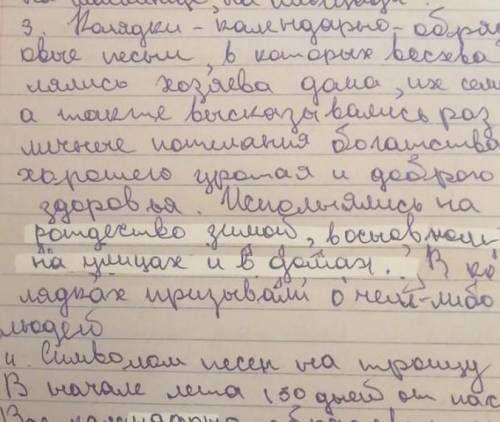 3. Колядки - календарно-обря
овые песни, в которых восхва
лялись хозяева дома, их сем
а также высказывались раз
личные пожелания богатства
хорошего урожая и доброго
здоровья. Исполнялись на
рождество зимой, в основном
на улицах и в домах. В ко
лядках призывали о чем-либо
людей
4. Символом песен на троицу
В начале лета (50 дней от пас